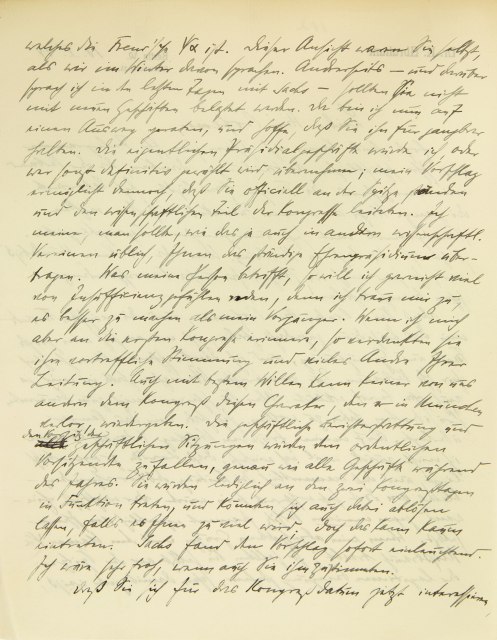 welches die Freud'sche Ψα ist. Dieser Ansicht waren Sie selbst,
als wir im Winter davon sprachen. Anderseits – und darüber
sprach ich in den letzten Tagen mit Sachs – sollten Sie nicht
mit neuen Geschäften belastet werden. Da bin ich nun auf
einen Ausweg geraten, und hoffe, daß Sie ihn für gangbar
halten. Die eigentlichen Präsidialgeschäfte würde ich, oder
wer sonst definitiv gewählt wird übernehmen; mein Vorschlag
ermöglicht dennoch, daß Sie officiell an der Spitze ständen
und den wissenschaftlichen Teil der Kongresse leiteten. Ich
meine, man sollte, wie das ja auch in andern wissenschaftl.
Vereinen üblich, Ihnen das ständige Ehrenpräsidium über-
tragen. Was meine Person betrifft, so will ich garnicht viel
von Insufficienzgefühlen reden, denn ich traue mir zu,
es besser zu machen als mein Vorgänger. Wenn ich mich
aber an die ersten Kongresse erinnere, so verdankten sie
ihre vortreffliche Stimmung und vieles Andre Ihrer
Leitung. Auch mit bestem Willen kann keiner von uns
andern dem Kongreß diesen Charakter, den er in München
verlor, wiedergeben. Die geschäftliche Berichterstattung und
der Vorsitz i/den geschäftlichen Sitzungen würden dem ordentlichen
Vorsitzenden zufallen, genau wie alle Geschäfte während
des Jahres. Sie würden lediglich an den zwei Kongreßtagen
in Funktion treten, und könnten sich auch dabei ablösen
lassen, falls es Ihnen zu viel wird. Doch das kann kaum
eintreten. Sachs fand den Vorschlag sofort einleuchtend.
Ich wäre sehr froh, wenn auch Sie ihm zustimmten.
Daß Sie sich für das Kongreßdatum jetzt interessieren,